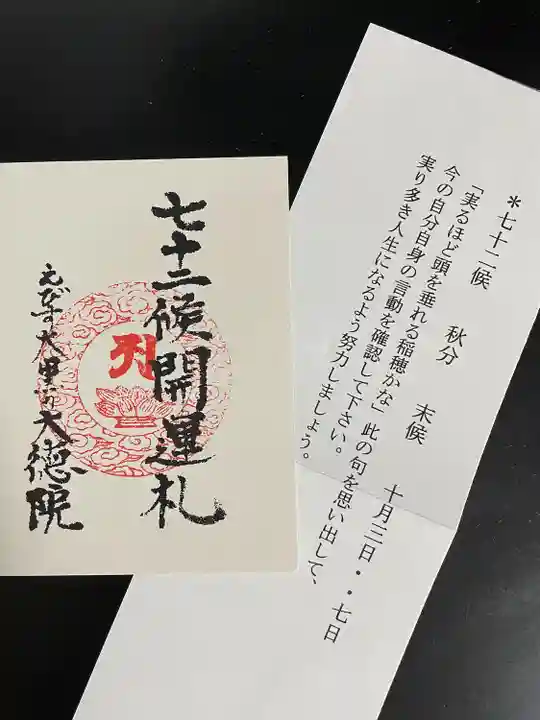 七十二候開運札
えびす大黒の大徳院
*七十二候　秋分　末候　十月三日・・七日
「実るほど頭を垂れる稲穂かな」此の句を思い出して、
今の自分自身の言動を確認して下さい。
実り多き人生になるよう努力しましょう。